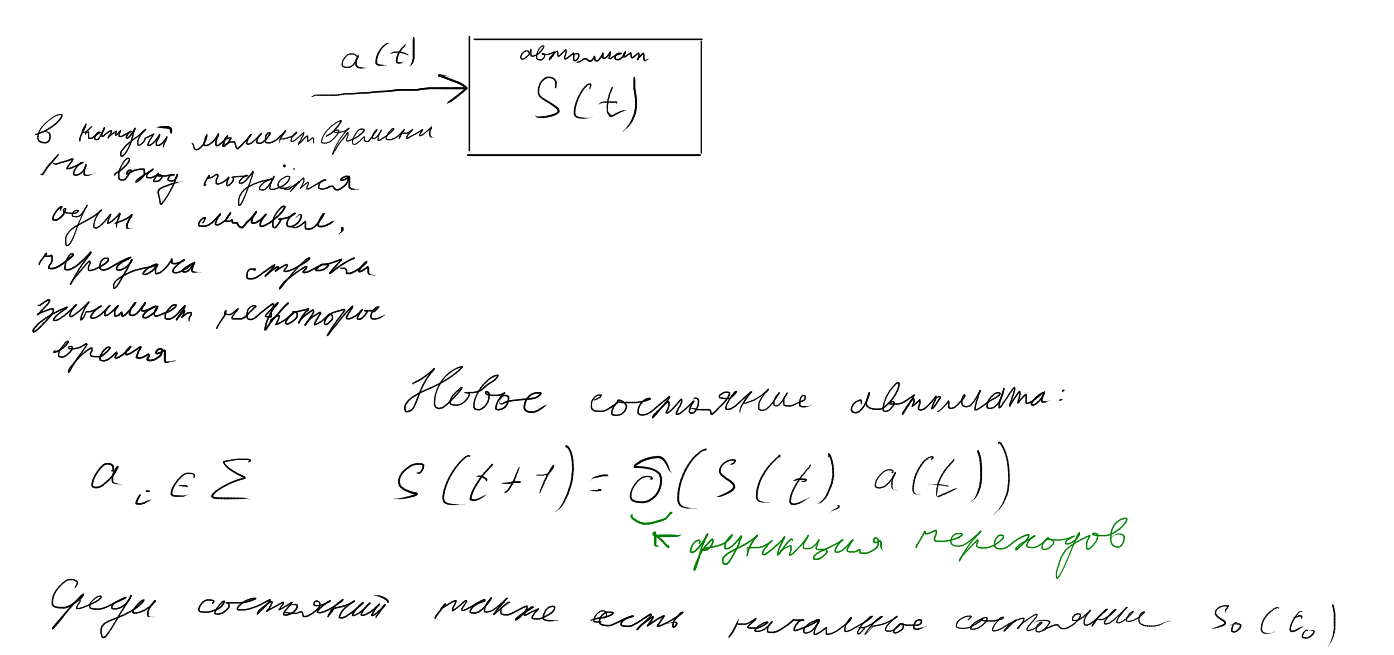 a(t)
автомат
S(t)
в каждый момент времени
на вход подаётся
один символ,
передача строки
занимает некоторое
время
Новое состояние автомата:
a i ∈ Σ
S(t+1) = δ(S(t), a(t))
функция переходов
Среди состояний также есть начальное состояние S₀(t₀)